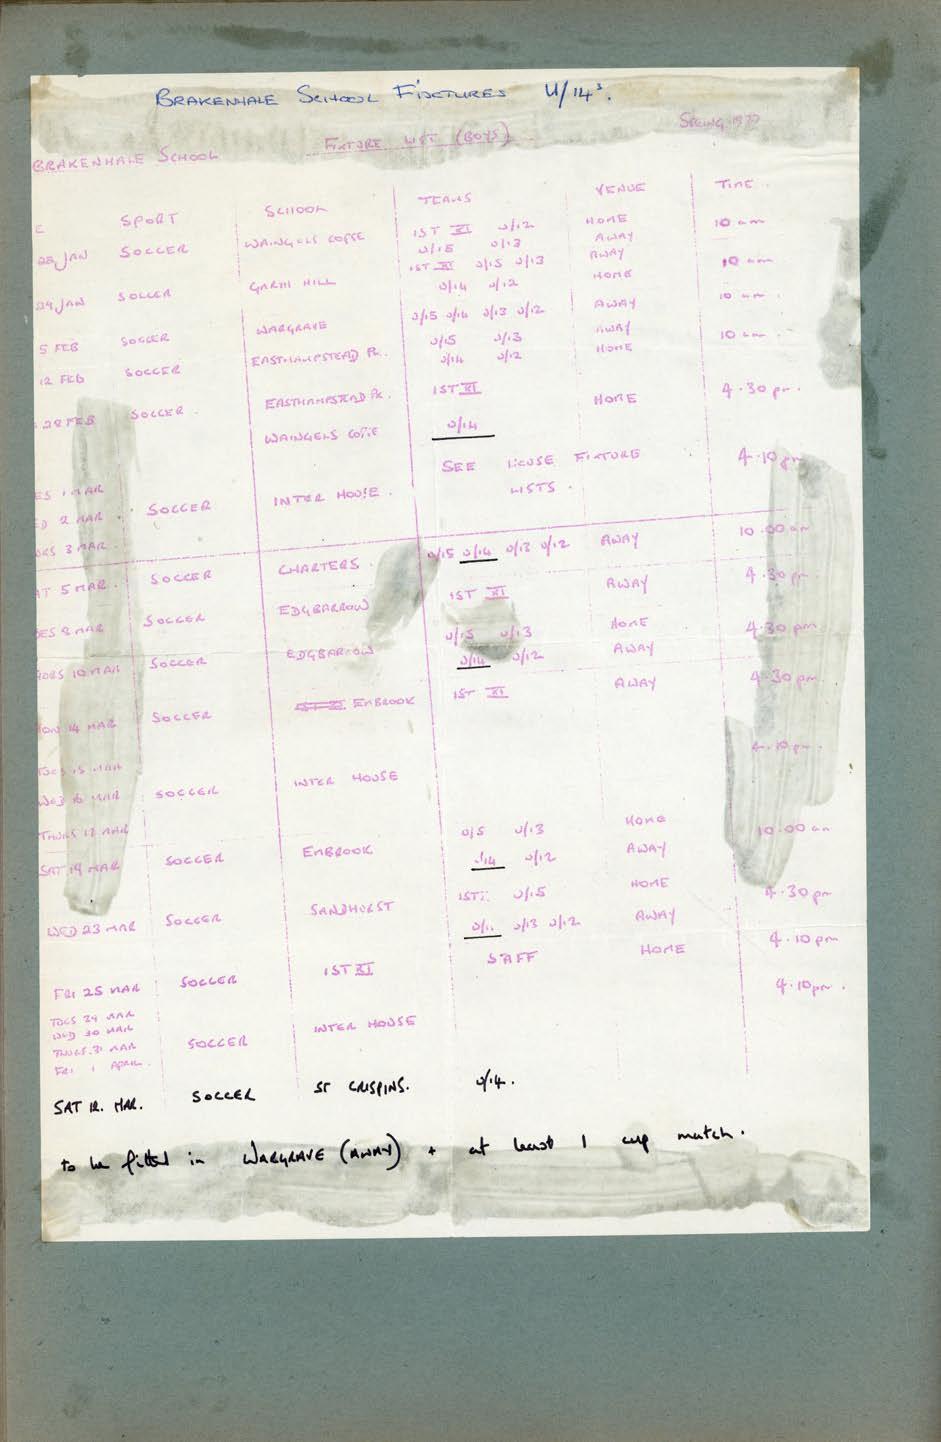 BRAKENHALE SCHOOL FIXTURES U/14s.
BRAKENHALE SCHOOL FIXTURE LIST (BOYS) SPRING 1977
E SPORT SCHOOL TEAMS VENUE TIME.
JAN SOCCER WAINGELS COPSE 1ST XI U/12 HOME 10 am
U/15 U/13 AWAY
29 JAN SOCCER GARTH HILL 1ST XI U/15 U/13 AWAY 10 am
U/14 U/12 HOME
5 FEB SOCCER WARGRAVE U/15 U/14 U/13 U/12 AWAY 10 am.
12 FEB SOCCER EASTHAMPSTEAD PK. U/15 U/13 AWAY 10 am
U/14 U/12 HOME
28 FEB SOCCER. EASTHAMPSTEAD PK. 1ST XI HOME 4.30 pm.
WAINGELS COPSE U/14
ES 1 MAR
ED 2 MAR. SOCCER INTER HOUSE. SEE HOUSE FIXTURE LISTS. 4.10 pm
URS 3 MAR.
AT 5 MAR. SOCCER CHARTERS. U/15 U/14 U/13 U/12 AWAY 10.00 am
UES 8 MAR SOCCER EDGBARROW 1ST XI AWAY 4.30 pm.
HURS 10 MAR SOCCER EDGBARROW U/15 U/13 HOME 4.30 pm
U/14 U/12 AWAY
MON 14 MAR SOCCER EMBROOK 1ST XI AWAY 4.30 pm.
TUES 15 MAR
WED 16 MAR SOCCER INTER HOUSE 4.10 pm.
THURS 17 MAR
SAT 19 MAR SOCCER EMBROOK U/15 U/13 HOME 10.00 am
U/14 U/12 AWAY
WED 23 MAR SOCCER SANDHURST 1ST U/15 HOME 4.30 pm
U/13 U/12 AWAY
FRI 25 MAR SOCCER 1ST XI STAFF HOME 4.10 pm
TUES 29 MAR
WED 30 MAR SOCCER INTER HOUSE 4.10 pm.
THURS. 31 MAR
FRI 1 APRIL.
SAT 12. MAR. SOCCER ST CRISPINS. U/14.
to be fitted in WARGRAVE (AWAY) + at least 1 cup match.